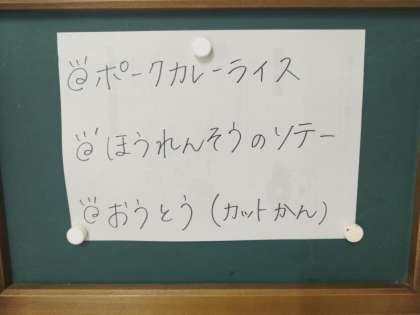 @ポークカレーライス
@ほうれんそうのソテー
@おうとう(カットかん)